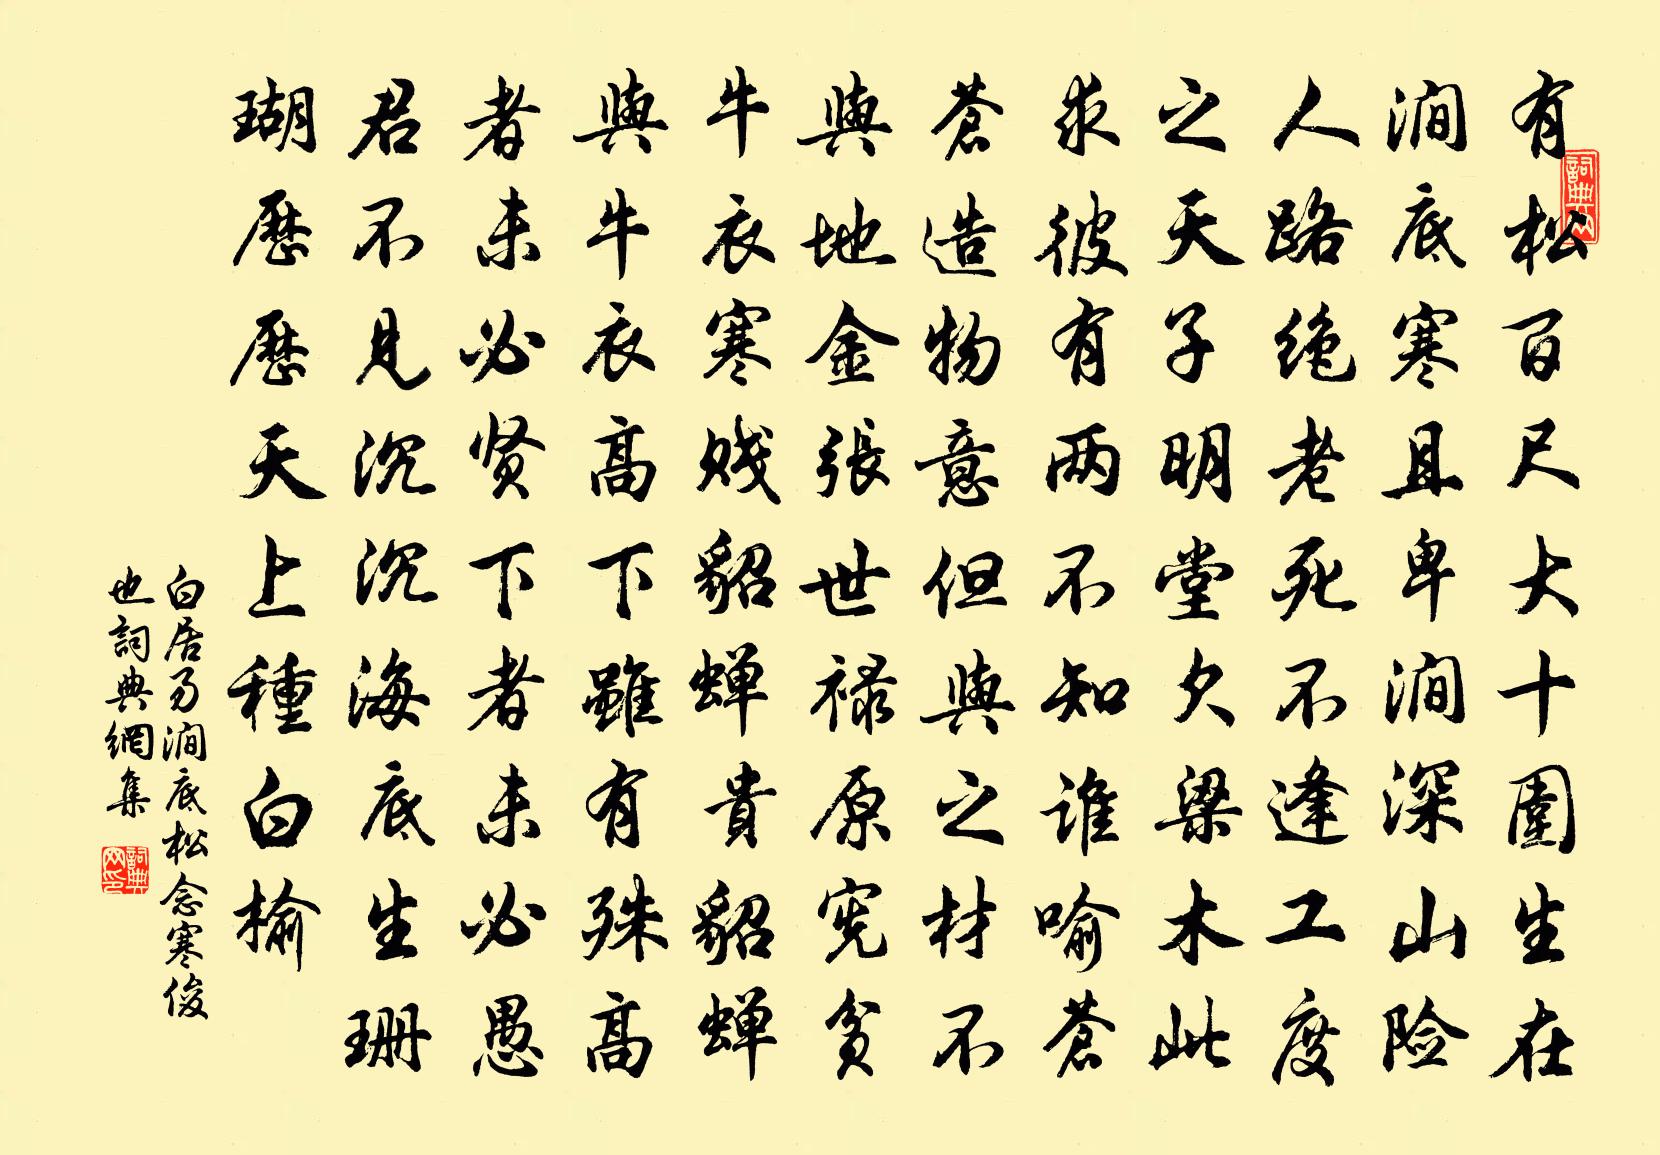 有松百尺大十圍生在
澗底寒且卑澗深山险
人路绝老死不逢工度
之天子明堂欠梁木此
求彼有两不知谁喻蒼
蒼造物意但與之材不
與地金張世禄原宪贫
牛衣寒贱貂蝉貴貂蝉
與牛衣高下雖有殊高
者未必贤下者未必愚
君不見沉沉海底生珊
瑚歷歷天上種白榆
白居易澗底松念寒俊
也詞典網集
詞典网
詞典网印